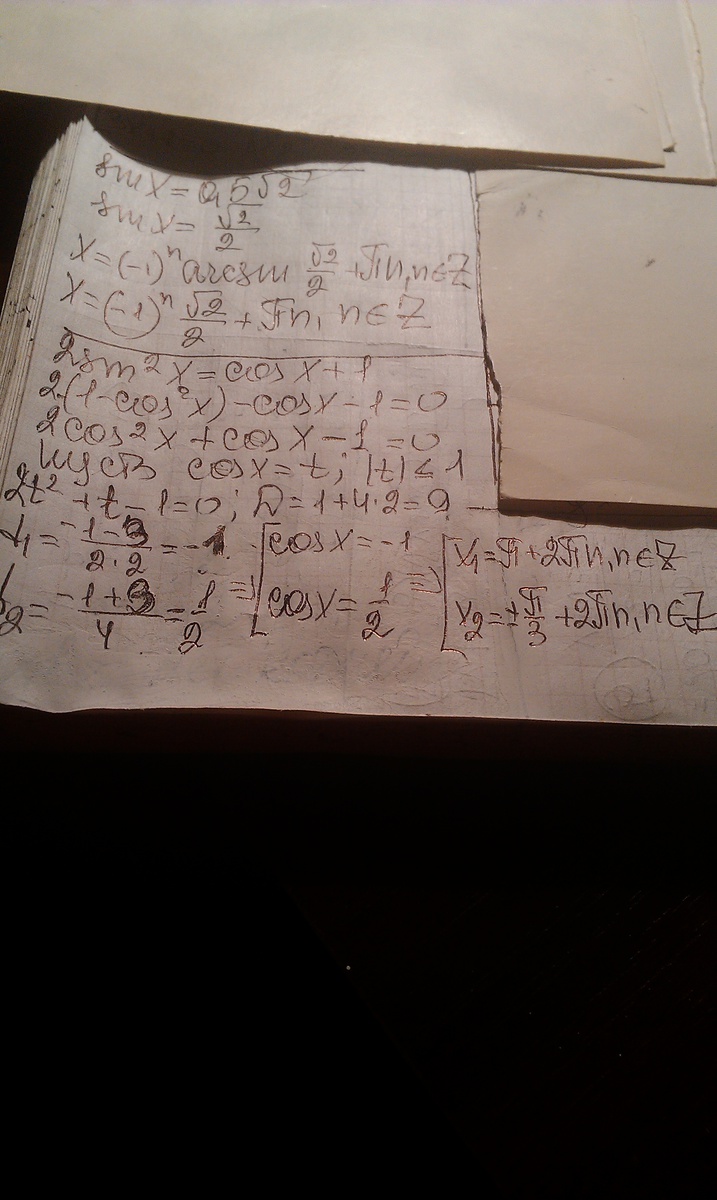 sin x = 0,5√2
sin x = √2/2
x = (-1)ⁿ arcsin √2/2 + πn, n ∈ Z
x = (-1)ⁿ √2/2 + πn, n ∈ Z
2sin²x = cos x + 1
2(1-cos²x) - cos x - 1 = 0
2cos²x + cos x - 1 = 0
Пусть cos x = t; |t| ≤ 1
2t² + t - 1 = 0; D = 1+4·2 = 9
t₁ = (-1-3)/(2·2) = -1 ⇒ [cos x = -1 ⇒ [x₁ = π + 2πn, n ∈ Z
t₂ = (-1+3)/4 = 1/2 cos x = 1/2 x₂ = ±π/3 + 2πn, n ∈ Z